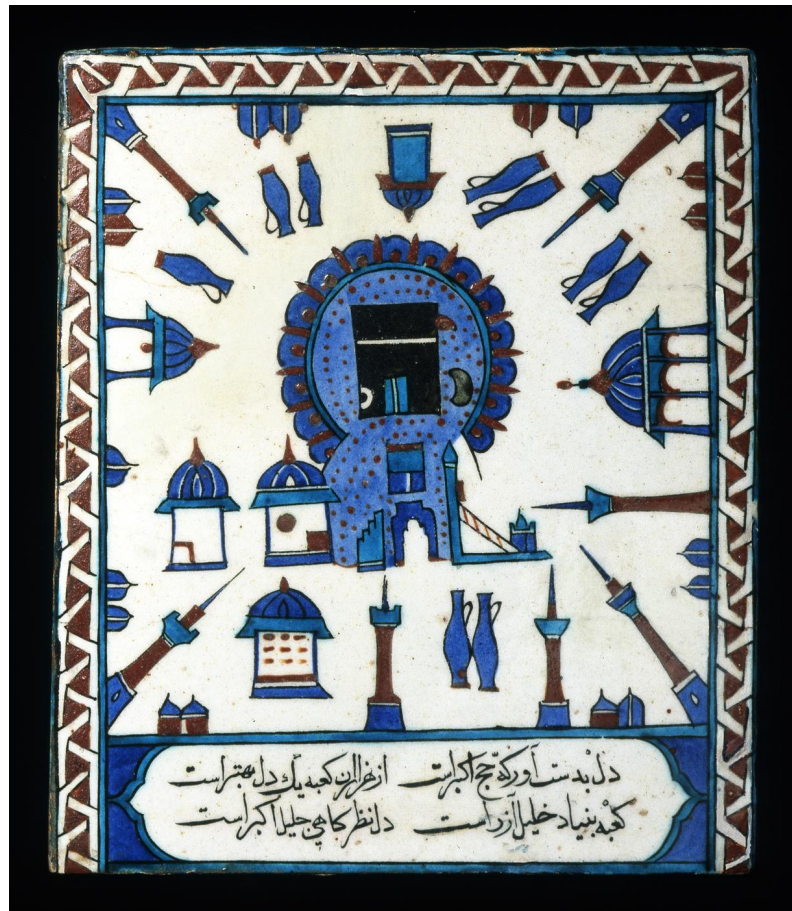 دل بدست آور که حج اکبرست از هزاران کعبه یك دل بهتر است
کعبه بنیاد خلیل آزر است دل نظرکاهی جلیل اکبر است